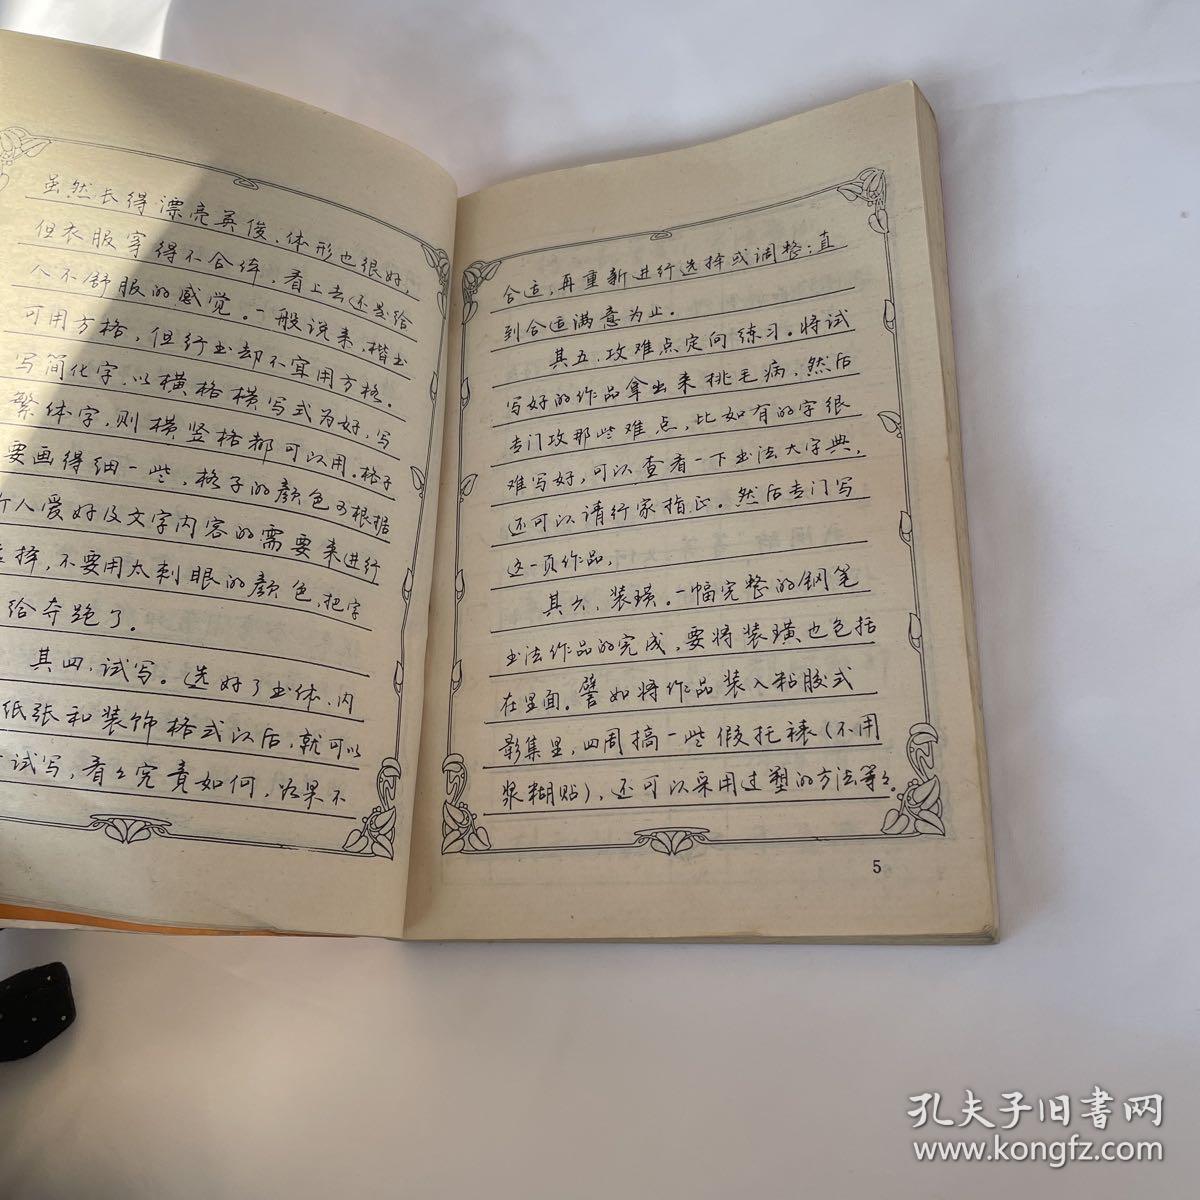 虽然长得漂亮英俊，体形也很好，
但衣服穿得不合体，看上去还是给
人不舒服的感觉。一般说来，楷书
可用方格，但行书却不宜用方格。
写简化字，以横格横写式为好，写
繁体字，则横竖格都可以用，格子
要画得细一些，格子的颜色可根据
个人爱好及文字内容的需要来进行
选择，不要用太刺眼的颜色，把字
给夺跑了。
其四，试写。选好了书体、内
纸张和装饰格式以后，就可以
试写，看看究竟如何，如果不
合适，再重新进行选择或调整；直
到合适满意为止。
其五，攻难点定向练习。将试
写好的作品拿出来挑毛病，然后
专门攻那些难点，比如有的字很
难写好，可以查看一下书法大字典，
还可以请行家指正。然后专门写
这一页作品。
其六，装璜。一幅完整的钢笔
书法作品的完成，要将装璜也包括
在里面。譬如将作品装入粘胶式
影集里，四周搞一些假托裱（不用
浆糊贴），还可以采用过塑的方法等等。
5
孔夫子旧书网
www.kongfz.com